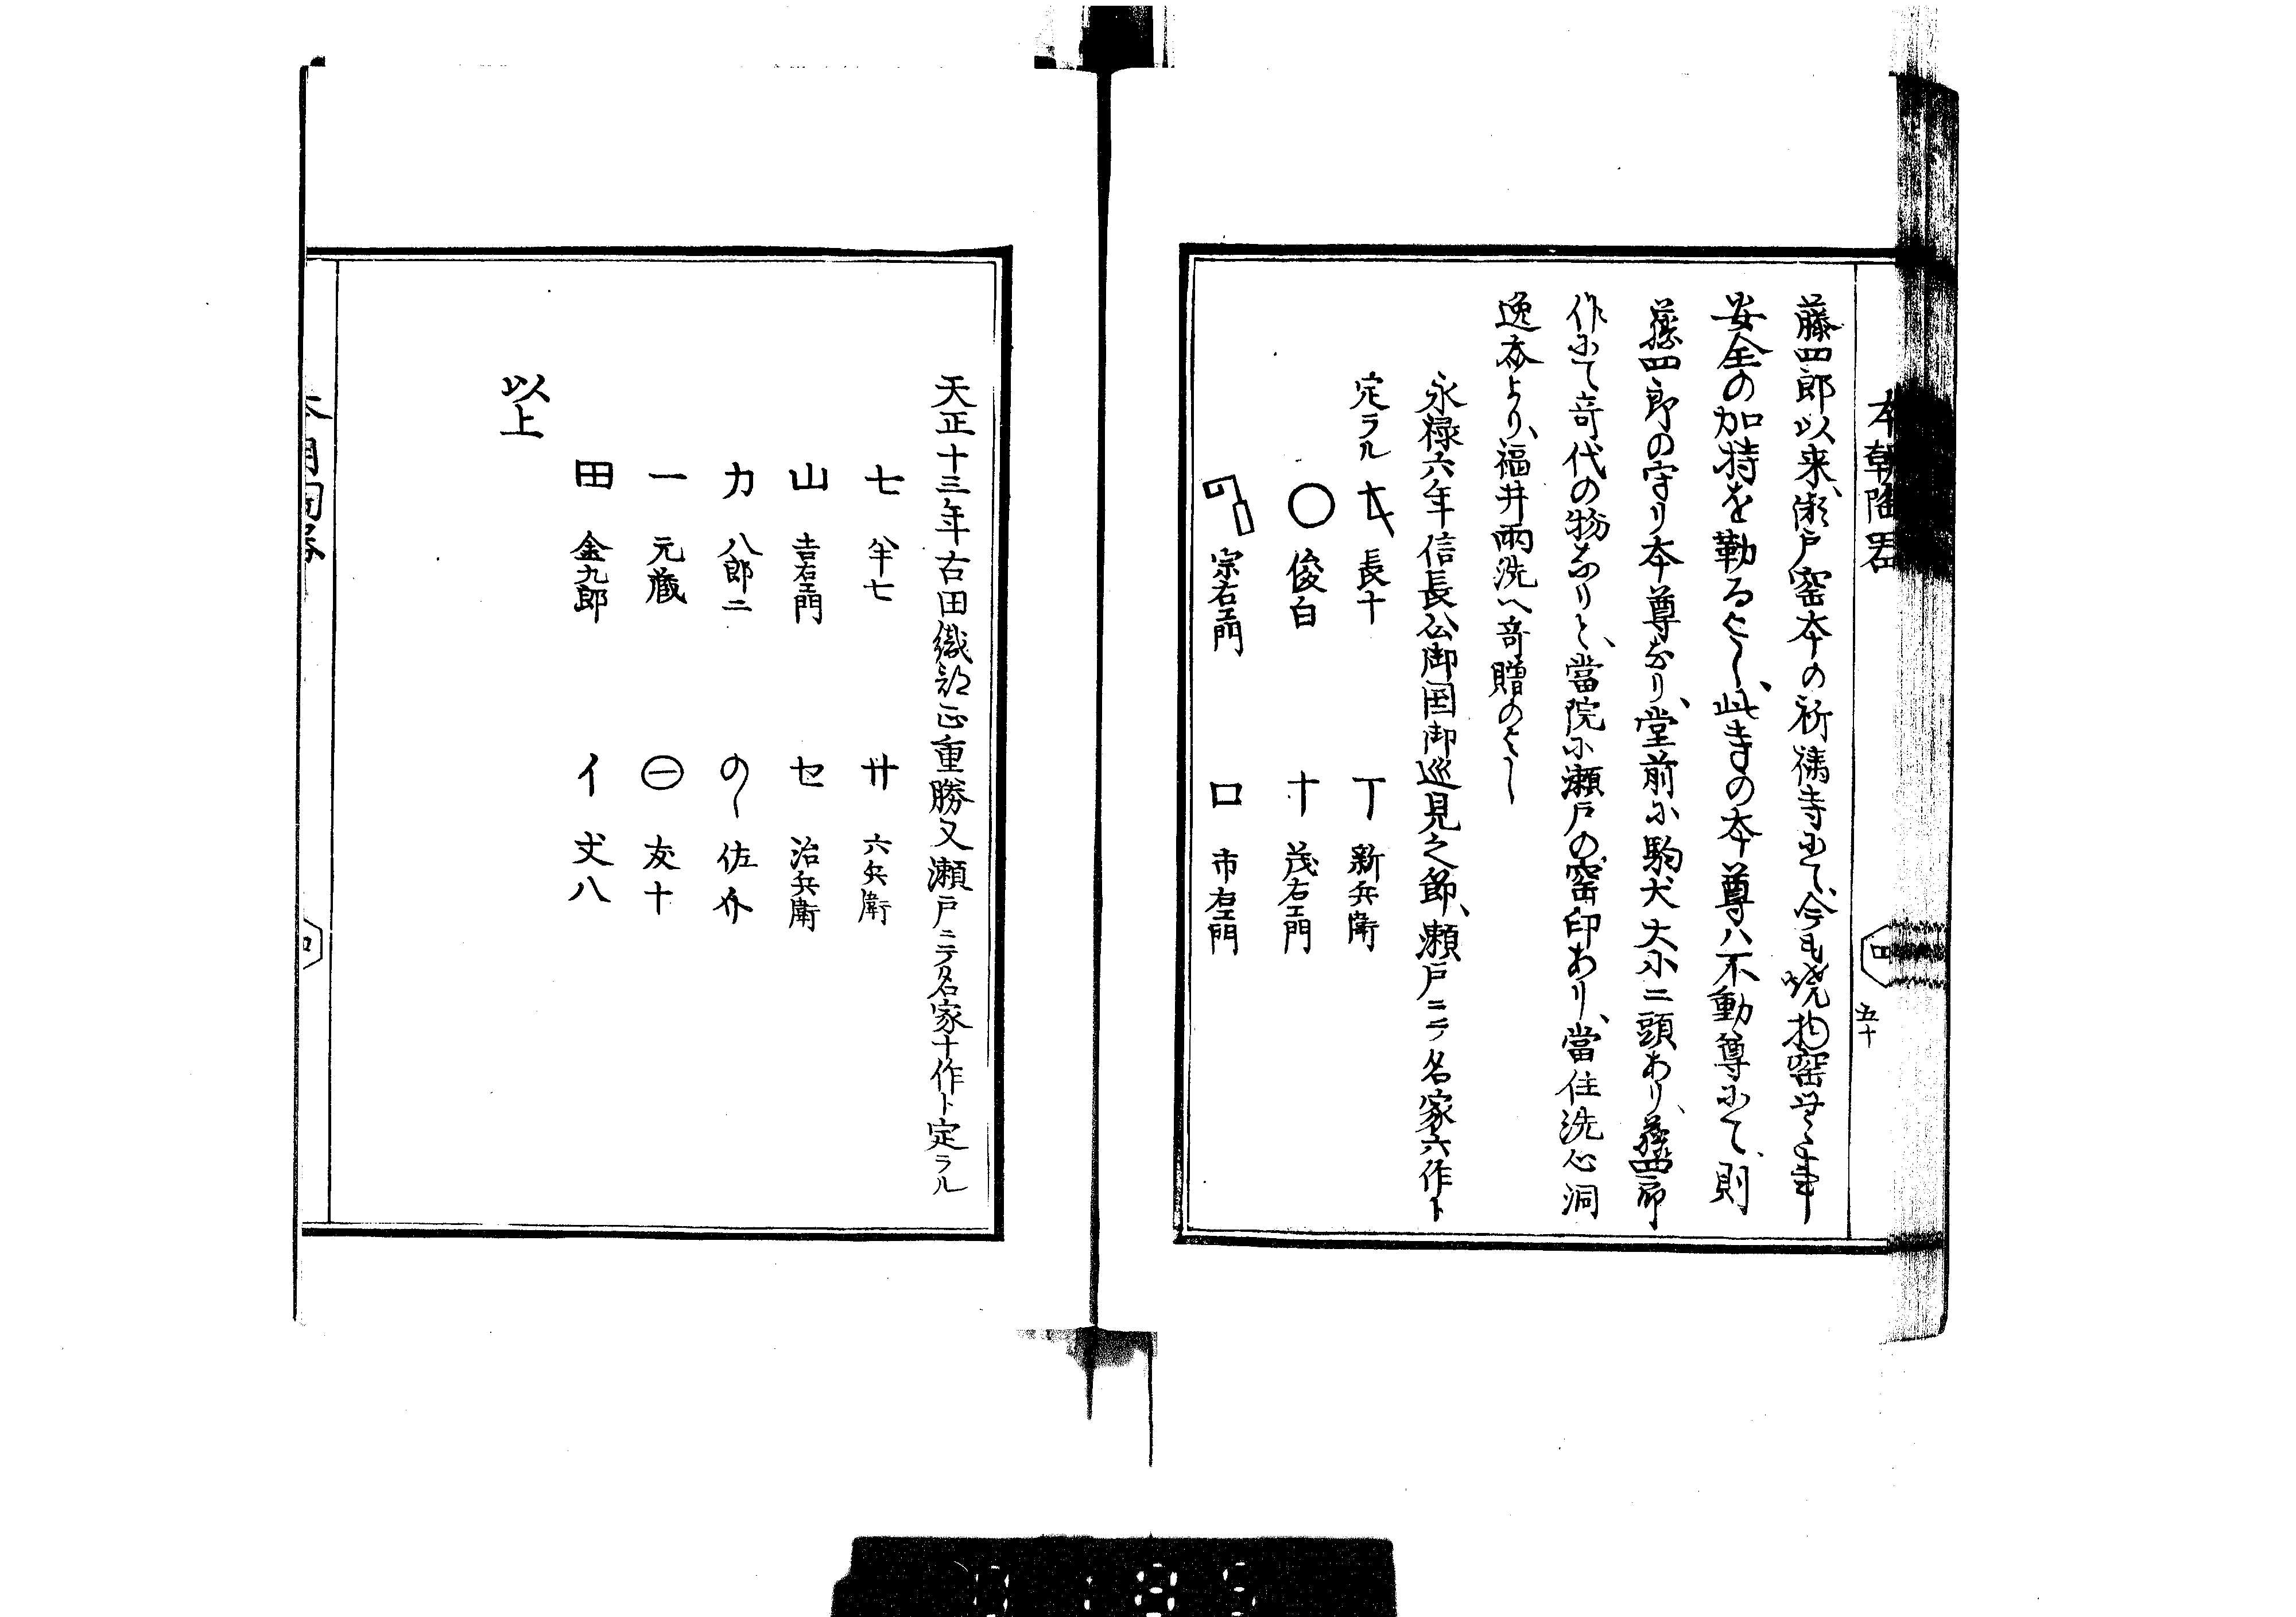 本朝陶器
四
五十
藤四郎以来、瀬戸窑本の祈祷寺にて、今も焼物窑
安全の加持を勤るよし、此寺の本尊ハ不動尊にて、則
藤四郎の守り本尊なり、堂前に駒犬大小二頭あり、藤四郎
作にて奇代の物なりと、當院に瀬戸の窑印あり、當住洗心洞
逸斎より、福井両洗へ寄贈のよし
永禄六年信長公御国御巡見之節、瀬戸ニテ名家六作ト
定ラル
長十
丁 新兵衛
〇 俊白
十 茂右エ門
宗右エ門
口 市右エ門
天正十三年古田織部正重勝又瀬戸ニテ名家十作ト定ラル
七 半七
廾 六兵衛
山 吉右エ門
セ 治兵衛
力 八郎二
の〱 佐介
一 元蔵
㊀ 友十
田 金九郎
イ 丈八
以上